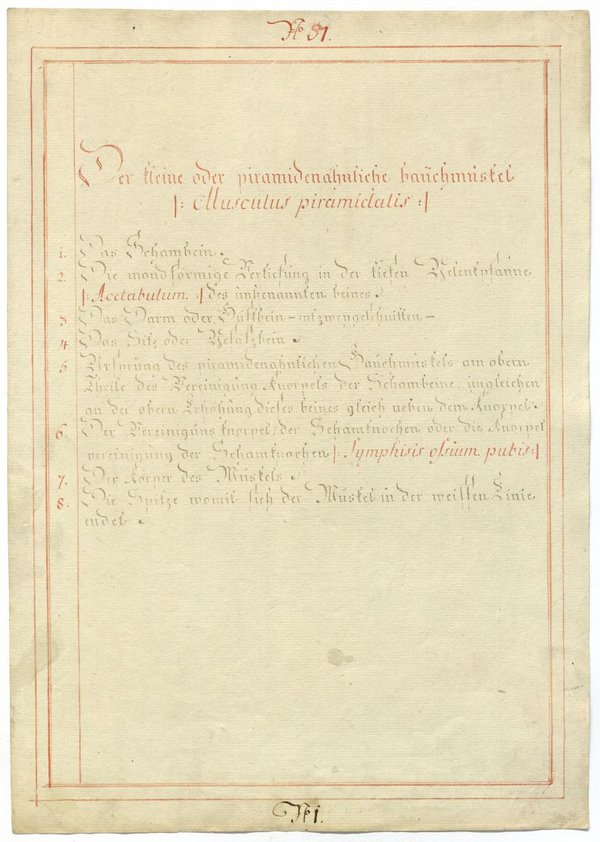 No 51.
Der kleine oder piramidenähnliche bauchmuskel
|: Musculus piramidalis :|
1. Das Schambein.
2. Die mondförmige Vertiefung in der tiefen Gelenkpfanne
|: Acetabulum :| des unbenannten beines.
3 Das Darm oder Hüftbein - entzweygeschnitten -
4 Das Sitz oder Gesäßbein.
5 Ursprung des piramidenähnlichen Bauchmuskels am obern
Theile des Vereinigung Knorpels der Schambeine, ingleichen
an der obern Erhöhung dieses beines gleich neben dem Knorpel.
6. Der Vereinigungs knorpel, der Schamknochen oder die Knorpel
vereinigung der Schamknochen |: Symphisis ossium pubis :|
7. Der Körper des Muskels.
8. Die Spitze womit sich der Muskel in der weissen Linie
endet.
No 1.